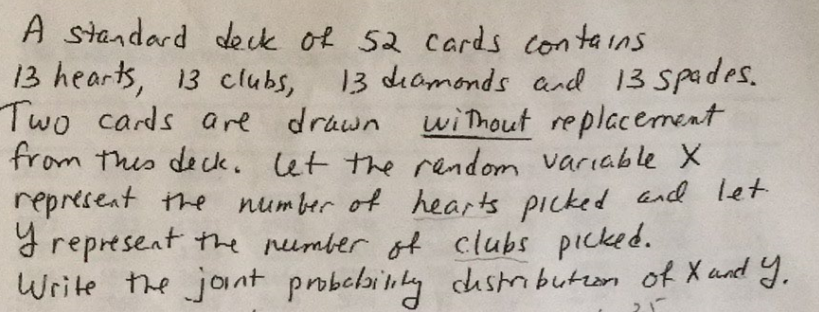 A standard deck of 52 cards contains
13 hearts, 13 clubs, 13 diamonds and 13 spades.
Two cards are drawn without replacement
from this deck. Let the random variable X
represent the number of hearts picked and let
Y represent the number of clubs picked.
Write the joint probability distribution of X and Y.